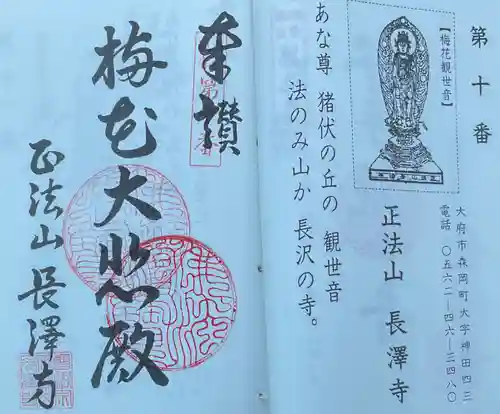 第十番
【梅花観世音】
大府市森岡町大字神田四三
電話 〇五六二―四六―三四八〇
正法山 長澤寺
あな尊 猪伏の丘の 観世音
法のみ山か 長沢の寺。
奉讃
梅花大悲殿
正法山 長澤寺